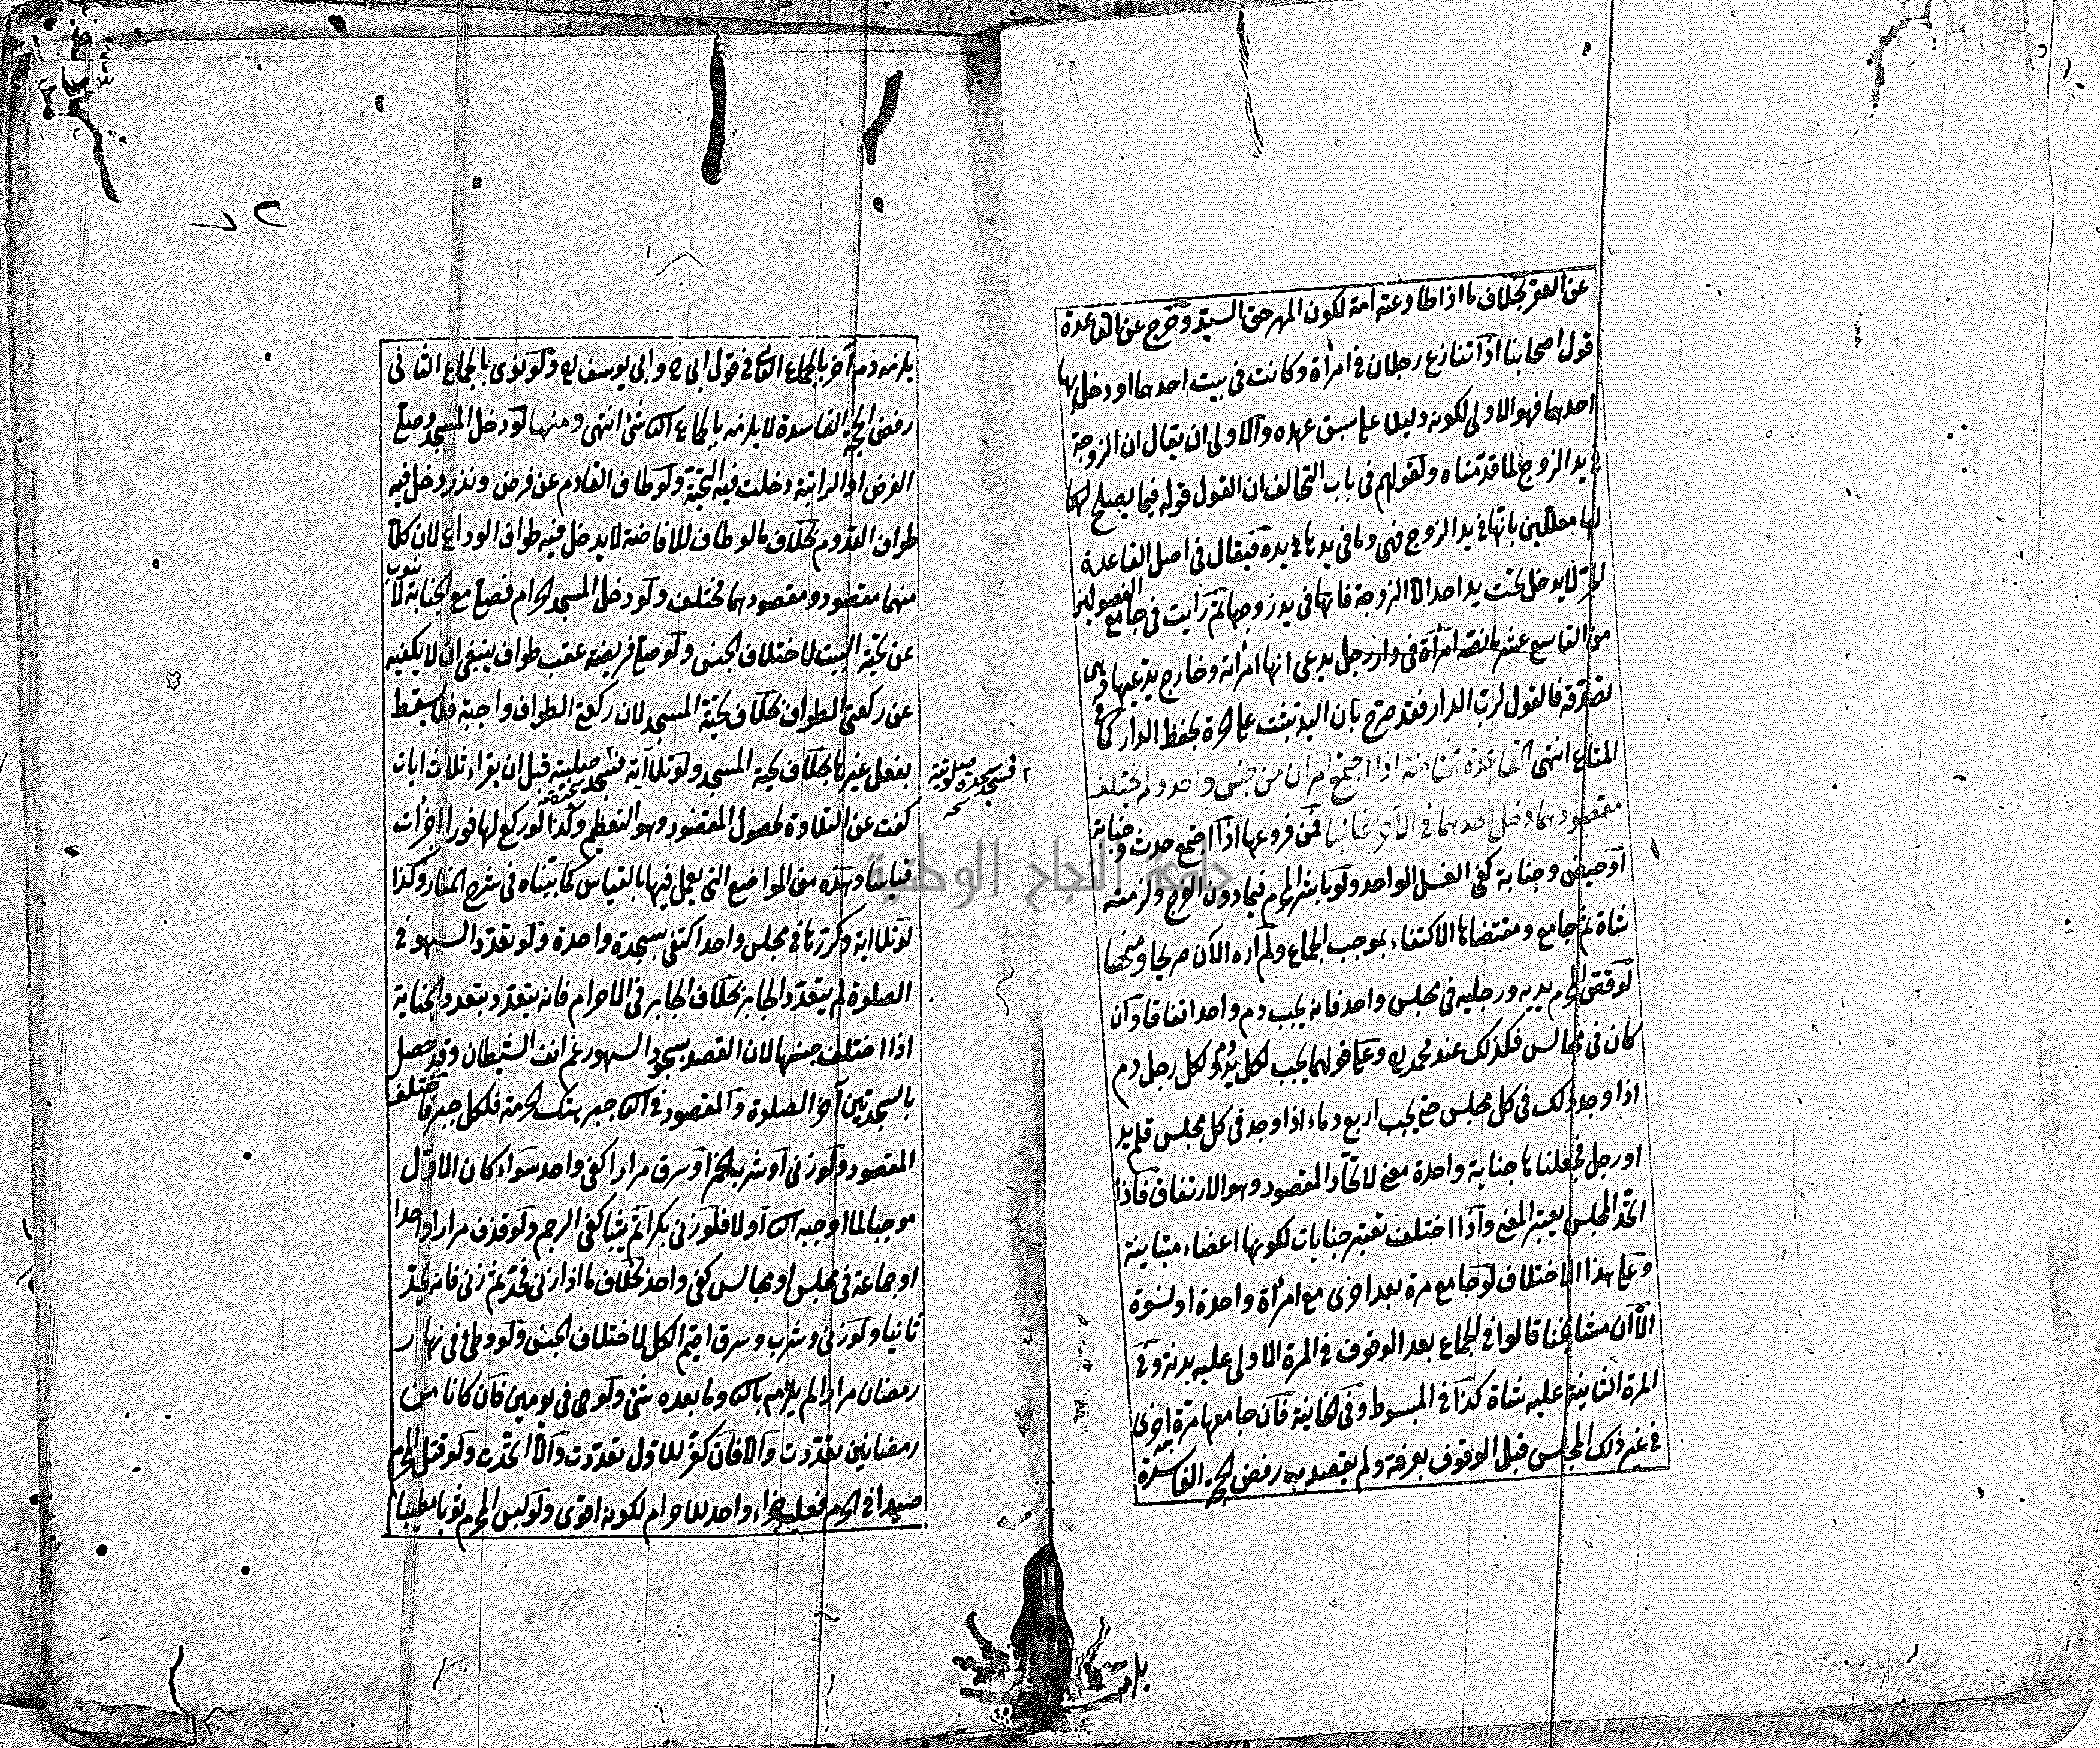 عن العقر بخلاف ما اذا طاوعته امة لكون المهر حق السيد وخرج عن القاعدة
قول اصحابنا اذا تنازع رجلان في امرأة وكانت في بيت احدهما او دخل بها
احدهما فهو الاولى لكونه دليلا على سبق عهده والاولى ان يقال ان الزوجة
في يد الزوج لما قدمناه ولقولهم في باب التحالف ان القول قوله فيما يصلح لهما
لها معللين بانها في يد الزوج فهي وما في يدها في يده فيقال في اصل القاعدة
الحر لا يدخل تحت يد احد الا الزوجة فانها في يد زوجها ثم رأيت في جامع الفصولين
من التاسع عشر ما نصه امرأة في دار رجل يدعي انها امرأته وخارج يدعيها وهي
تصدقه فالقول لرب الدار فقد صرح بان اليد تثبت على الحرة بحفظ الدار كما في
المتاع انتهى القاعدة الثامنة اذا اجتمع امران من جنس واحد ولم يختلف
مقصودهما دخل احدهما في الآخر غالبا فمن فروعها اذا اجتمع حدث وجنابة
او حيض وجنابة كفى الغسل الواحد ولو باشر المحرم فيما دون الفرج ولزمته
شاة ثم جامع ومقتضاها الاكتفاء بموجب الجماع ولم اره الآن صريحا ومنها
لو قص المحرم يديه ورجليه في مجلس واحد فانه يجب دم واحد اتفاقا وان
كان في مجالس فكذلك عند محمد ره وعلى قولهما يجب لكل يد دم ولكل رجل دم
اذا وجد ذلك في كل مجلس حتى يجب اربع دماء اذا وجد في كل مجلس قلم يد
او رجل فجعلناها جناية واحدة معنى لاتحاد المقصود وهو الارتفاق فاذا
اتحد المجلس يعتبر المعنى واذا اختلف تعتبر جنايات لكونها اعضاء متباينة
وعلى هذا الاختلاف لو جامع مرة بعد اخرى مع امرأة واحدة او نسوة
الا ان مشايخنا قالوا في الجماع بعد الوقوف في المرة الاولى عليه بدنة وفي
المرة الثانية عليه شاة كذا في المبسوط وفي الخانية فان جامعها مرة اخرى
في غير ذلك المجلس قبل الوقوف بعرفة ولم يقصد به رفض الحجة الفاسدة
يلزمه
يلزمه دم آخر بالجماع الثاني في قول ابي ح وابي يوسف ره ولو نوى بالجماع الثاني
رفض الحجة الفاسدة لا يلزمه بالجماع الث شئ انتهى ومنها لو دخل المسجد وصلى
الفرض او الراتبة دخلت فيه التحية ولو طاف القادم عن فرض ونذر دخل فيه
طواف القدوم بخلاف ما لو طاف للافاضة لا يدخل فيه طواف الوداع لان كلا
منهما مقصود ومقصودهما مختلف ولو دخل المسجد الحرام فصلى مع الجنابة لا ينوب
عن تحية البيت لاختلاف الجنس ولو صلى فريضة عقب طواف ينبغي ان لا يكفيه
عن ركعتي الطواف بخلاف تحية المسجد لان ركعتي الطواف واجبة فلا يسقط
بفعل غيرها بخلاف تحية المسجد ولو تلا آية فسجد صلبية قبل ان يقراء ثلاث ايات
فسجد سجدة صلوتية نسخه
كفت عن التلاوة لحصول المقصود وهو التعظيم وكذا لو ركع لها فورا اجزأت
قياسا وهذه من المواضع التي يعمل فيها بالقياس كما بيناه في شرح المنار وكذا
لو تلا اية وكررها في مجلس واحد اكتفى بسجدة واحدة ولو تعدد السهو في
الصلوة لم يتعدد الجابر بخلاف الجابر في الاحرام فانه يتعدد بتعدد الجناية
اذا اختلف جنسها لان القصد بسجود السهو رغم انف الشيطان وقد حصل
بالسجدتين آخر الصلوة والمقصود في الث جبر هتك الحرمة فلكل جبر فاختلف
المقصود ولو زنى او شرب الخمر او سرق مرارا كفى واحد سواء كان الاول
موجبا لما اوجبه الث او لا فلو زنى بكرا ثم ثيبا كفى الرجم ولو قذف مرارا واحدا
او جماعة في مجلس او مجالس كفى واحد بخلاف ما اذا زنى فحد ثم زنى فانه يحد
ثانيا ولو زنى وشرب وسرق اقيم الكل لاختلاف الجنس ولو وطئ في نهار
رمضان مرارا لم يلزمه بالث وما بعده شئ ولو في يومين فان كانا من
رمضانين تعددت والا فان كفر للاول تعددت والا اتحدت ولو قتل المحرم
صيدا في الحرم فعليه جزاء واحد للاحرام لكونه اقوى ولو لبس المحرم ثوبا مطيبا
جامعة النجاح الوطنية